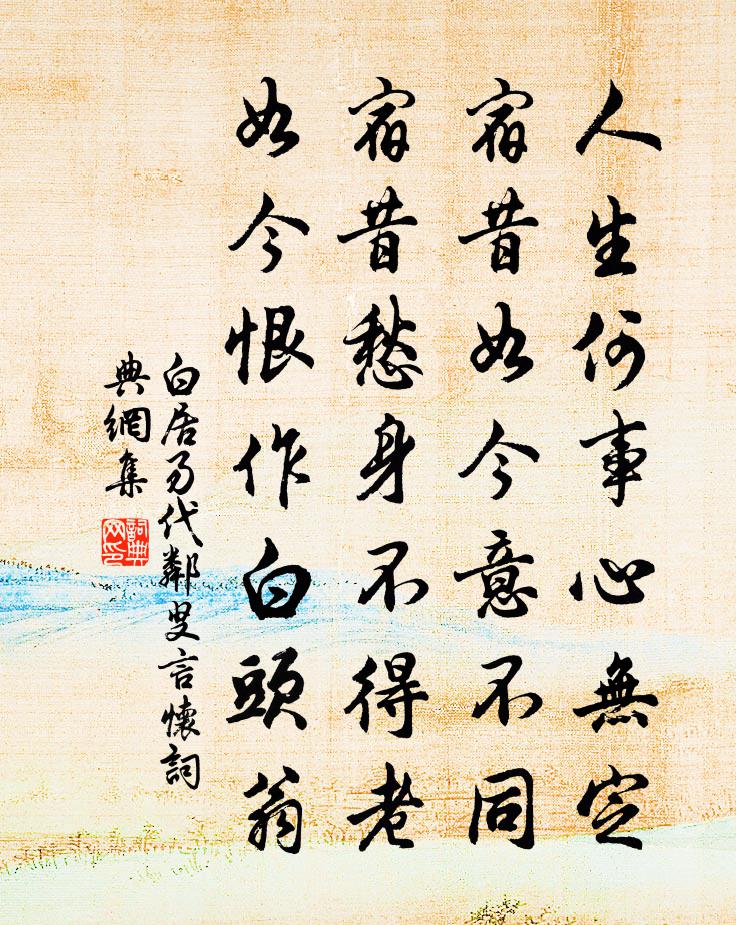 人生何事心無定
宿昔如今意不同
宿昔愁身不得老
如今恨作白頭翁
白居易代鄰叟言懷詞
典網集
詞典網印